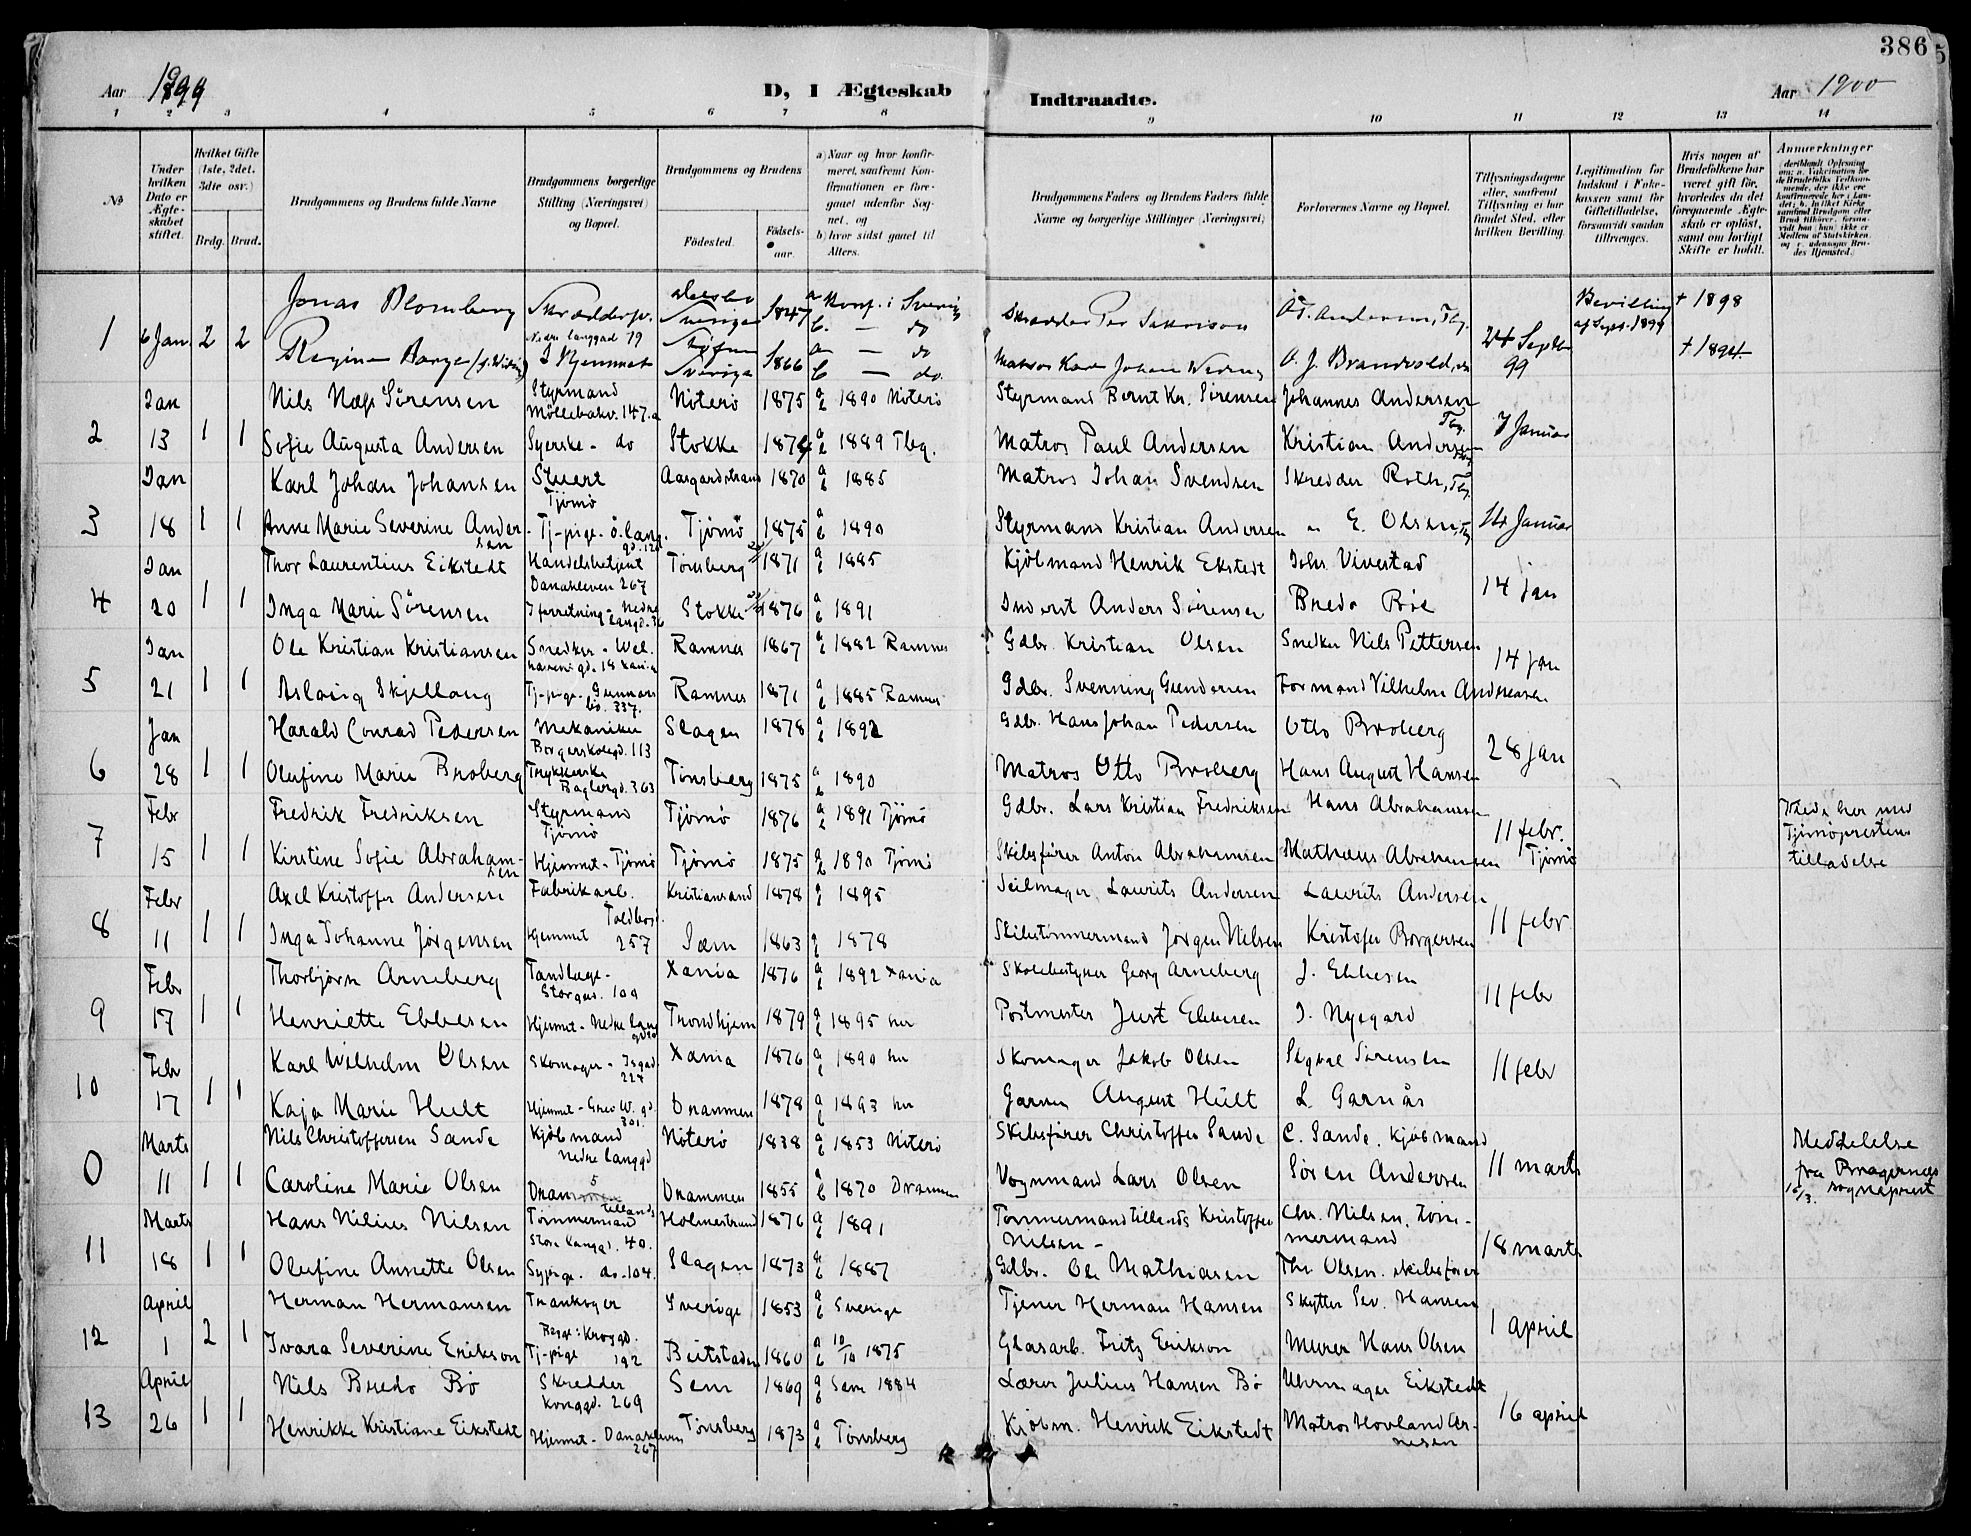 386
5
Aar 1899 D, I Ægteskab
Indtraadte. Aar 1900
1 2 3 4 5 6 7 8 9 10 11 12 13 14
№
Under hvilken Dato er Ægteskabet stiftet.
Hvilket Gifte (1ste, 2det, 3die osv.)
Brdg. Brud.
Brudgommens og Brudens fulde Navne
Brudgommens borgerlige Stilling (Næringsvei) og Bopæl.
Brudgommens og Brudens
Fødested.
Fødsels-aar.
a) Naar og hvor konfirmeret, saafremt Konfirmationen er foregaaet udenfor Sognet, og
b) hvor sidst gaaet til Alters.
Brudgommens Faders og Brudens Faders fulde Navne og borgerlige Stillinger (Næringsvei)
Forlovernes Navne og Bopæl.
Tillysningsdagene eller, saafremt Tillysning ei har fundet Sted, efter hvilken Bevilling.
Legitimation for Indskud i Enkekassen samt for Giftetilladelse, forsaavidt saadan tiltrænges.
Hvis nogen af Brudefolkene har været gift før, hvorledes da det foregaaende Ægteskab er opløst, samt om lovligt Skifte er holdt.
Anmærkninger
1 6 Jan 2 2 Jonas Blomberg Skræddersv. Nedre langgad 79 Sverige 1847 a Konf. i Sverig b. — do Skrædder Per O.T. Andersen, Tbg. 24 Septbr 99 Bevilling af Sept. 1899 † 1898
I Hjemmet Sverige 1866 a — do b — do. Matros Karl Johan O. J. Brandvold, do † 1894
2 Jan 13 1 1 Nils Næss Sörensen Styrmand Möllebakv. 147.a Nöterö 1875 a b 1890 Nöterö Styrmand Bernt Kr. Sörensen Johannes Andersen Tbg. 7 Januar
Sofie Augusta Andersen Syerske - do Stokke 1874 a b 1889 Tbg. Matros Paul Andersen Kristian Andersen Tbg
3 Jan 18 1 1 Karl Johan Johansen Stuert Tjömö Aasgaardstrand 1870 a b 1885 Matros Johan Svendsen Skredder Roth, Tbg. 14 Januar
Anne Marie Severine Andersen Tj-pige - ö. lang. gd. 126 Tjömö 1875 a b 1890 Styrmand Kristian Andersen " E. Olsen, Tbg
4 Jan 20 1 1 Thor Laurentius Eikstedt Handelsbetjent Danakleven 267 Tönsberg 1871 a b 1885 Kjöbmand Henrik Ekstedt Johs. Vivestad 14 jan
Inga Marie Sörensen I forretning - Nedre langd. 36 Stokke 1876 a b 1891 Inderst Anders Sörensen Bredo Böe
5 Jan 21 1 1 Ole Kristian Kristiansen Snedker - Wel. havensgd. 18 Xania Ramnes 1867 a b 1882 Ramnes Gdbr. Kristian Olsen Snedker Nils Pettersen 14 jan
Aslaug Skjellaug Tj-pige. Gunnars bö. 337. Ramnes 1871 a b 1885 Ramnes Gdbr. Svenning Gundersen Formand Vilhelm Andreasen
6 Jan 28 1 1 Harald Conrad Pedersen Mekaniker Borgerskolegd. 113 Slagen 1878 a b 1892 Gdbr. Hans Johan Pedersen Otto Broberg 28 jan
Olufine Marie Broberg Trykkerske Baglergd. 363 Tönsberg 1875 a b 1890 Matros Otto Broberg Hans August Hansen
7 Febr 15 1 1 Fredrik Fredriksen Styrmand Tjömö Tjömö 1876 a b 1891 Tjömö Gdbr. Lars Kristian Fredriksen Hans Abrahamsen 11 febr. Tjömö Viede her med Tjömöprestens tilladelse
Kirstine Sofie Abrahamsen Hjemmet - Tjömö Tjömö 1875 a b 1890 Tjömö Skibsförer Anton Abrahamsen Mathæus Abrahamsen
8 Febr 11 1 1 Axel Kristoffer Andersen Fabrikarb. Kristiansand 1878 a b 1895 Seilmager Laurits Andersen Laurits Andersen 11 febr
Inga Johanne Jörgensen Hjemmet Toldbod. 257 Sæm 1863 a b 1878 Skibstömmermand Jörgen Nilsen Kristofer Borgersen
9 Febr 17 1 1 Thorbjörn Arneberg Tandlæge - Storgad. 109 Xania 1876 a b 1892 Xania Skolebestyrer Georg Arneberg J. Ebbesen 11 febr
Henriette Ebbesen Hjemmet - Nedre lang Trondhjem 1879 a b 1895 her Postmester Just Ebbesen J. Nygaard
10 Febr 17 1 1 Karl Wilhelm Olsen Skomager - Isgad. 224 Xania 1876 a b 1890 her Skomager Jakob Olsen Sigval Sörensen 11 febr
Kaja Marie Hult Hjemmet - Grev W. gd. 301. Drammen 1878 a b 1893 her Garver August Hült L. Garnås
0 Marts 11 1 1 Nils Christoffersen Sande Kjöbmand nedre langgd 5 Nöterö 1838 a b 1853 Nöterö Skibsförer Christoffer Sande C. Sande, kjöbmand 11 marts Meddelelse fra Bragernæs sogneprest 16/3.
Caroline Marie Olsen Drammen Drammen 1855 a b 1870 Drammen Vognmand Lars Olsen Sören Andersen
11 Marts 18 1 1 Hans Nilius Nilsen Tömmermand tillands Store langgd. 40. Holmestrand 1876 a b 1891 Tömmermand tillands Kristoffer Nilsen - Chr. Nilsen, tömmermand 18 marts
Olufine Annette Olsen Sypige. do. 104. Slagen 1873 a b 1887 Gdbr. Ole Mathiasen Thr Olsen. skibsförer
12 April 1 2 1 Herman Hermansen Trankoger Sverige 1853 a b Sverige Tjener Herman Hansen Skytter Sev. Hansen 1 april
Ivara Severine Erikson Tj-pige 192 Beitstaden 1860 a b 10/10 1875 Glasarb. Fritz Erikson Murer Hans Olsen
13 April 26 1 1 Nils Bredo Bö Skredder Konggd. 269 Sem 1869 a b Sem 1884 Lærer Julius Hansen Bö Uhrmager Eikstedt 16 april
Henrikke Kristiane Eikstedt Hjemmet - Danakleven 267 Tönsberg 1873 a b Tönsberg Kjöbm. Henrik Eikstedt Matros Hovland Arnesen